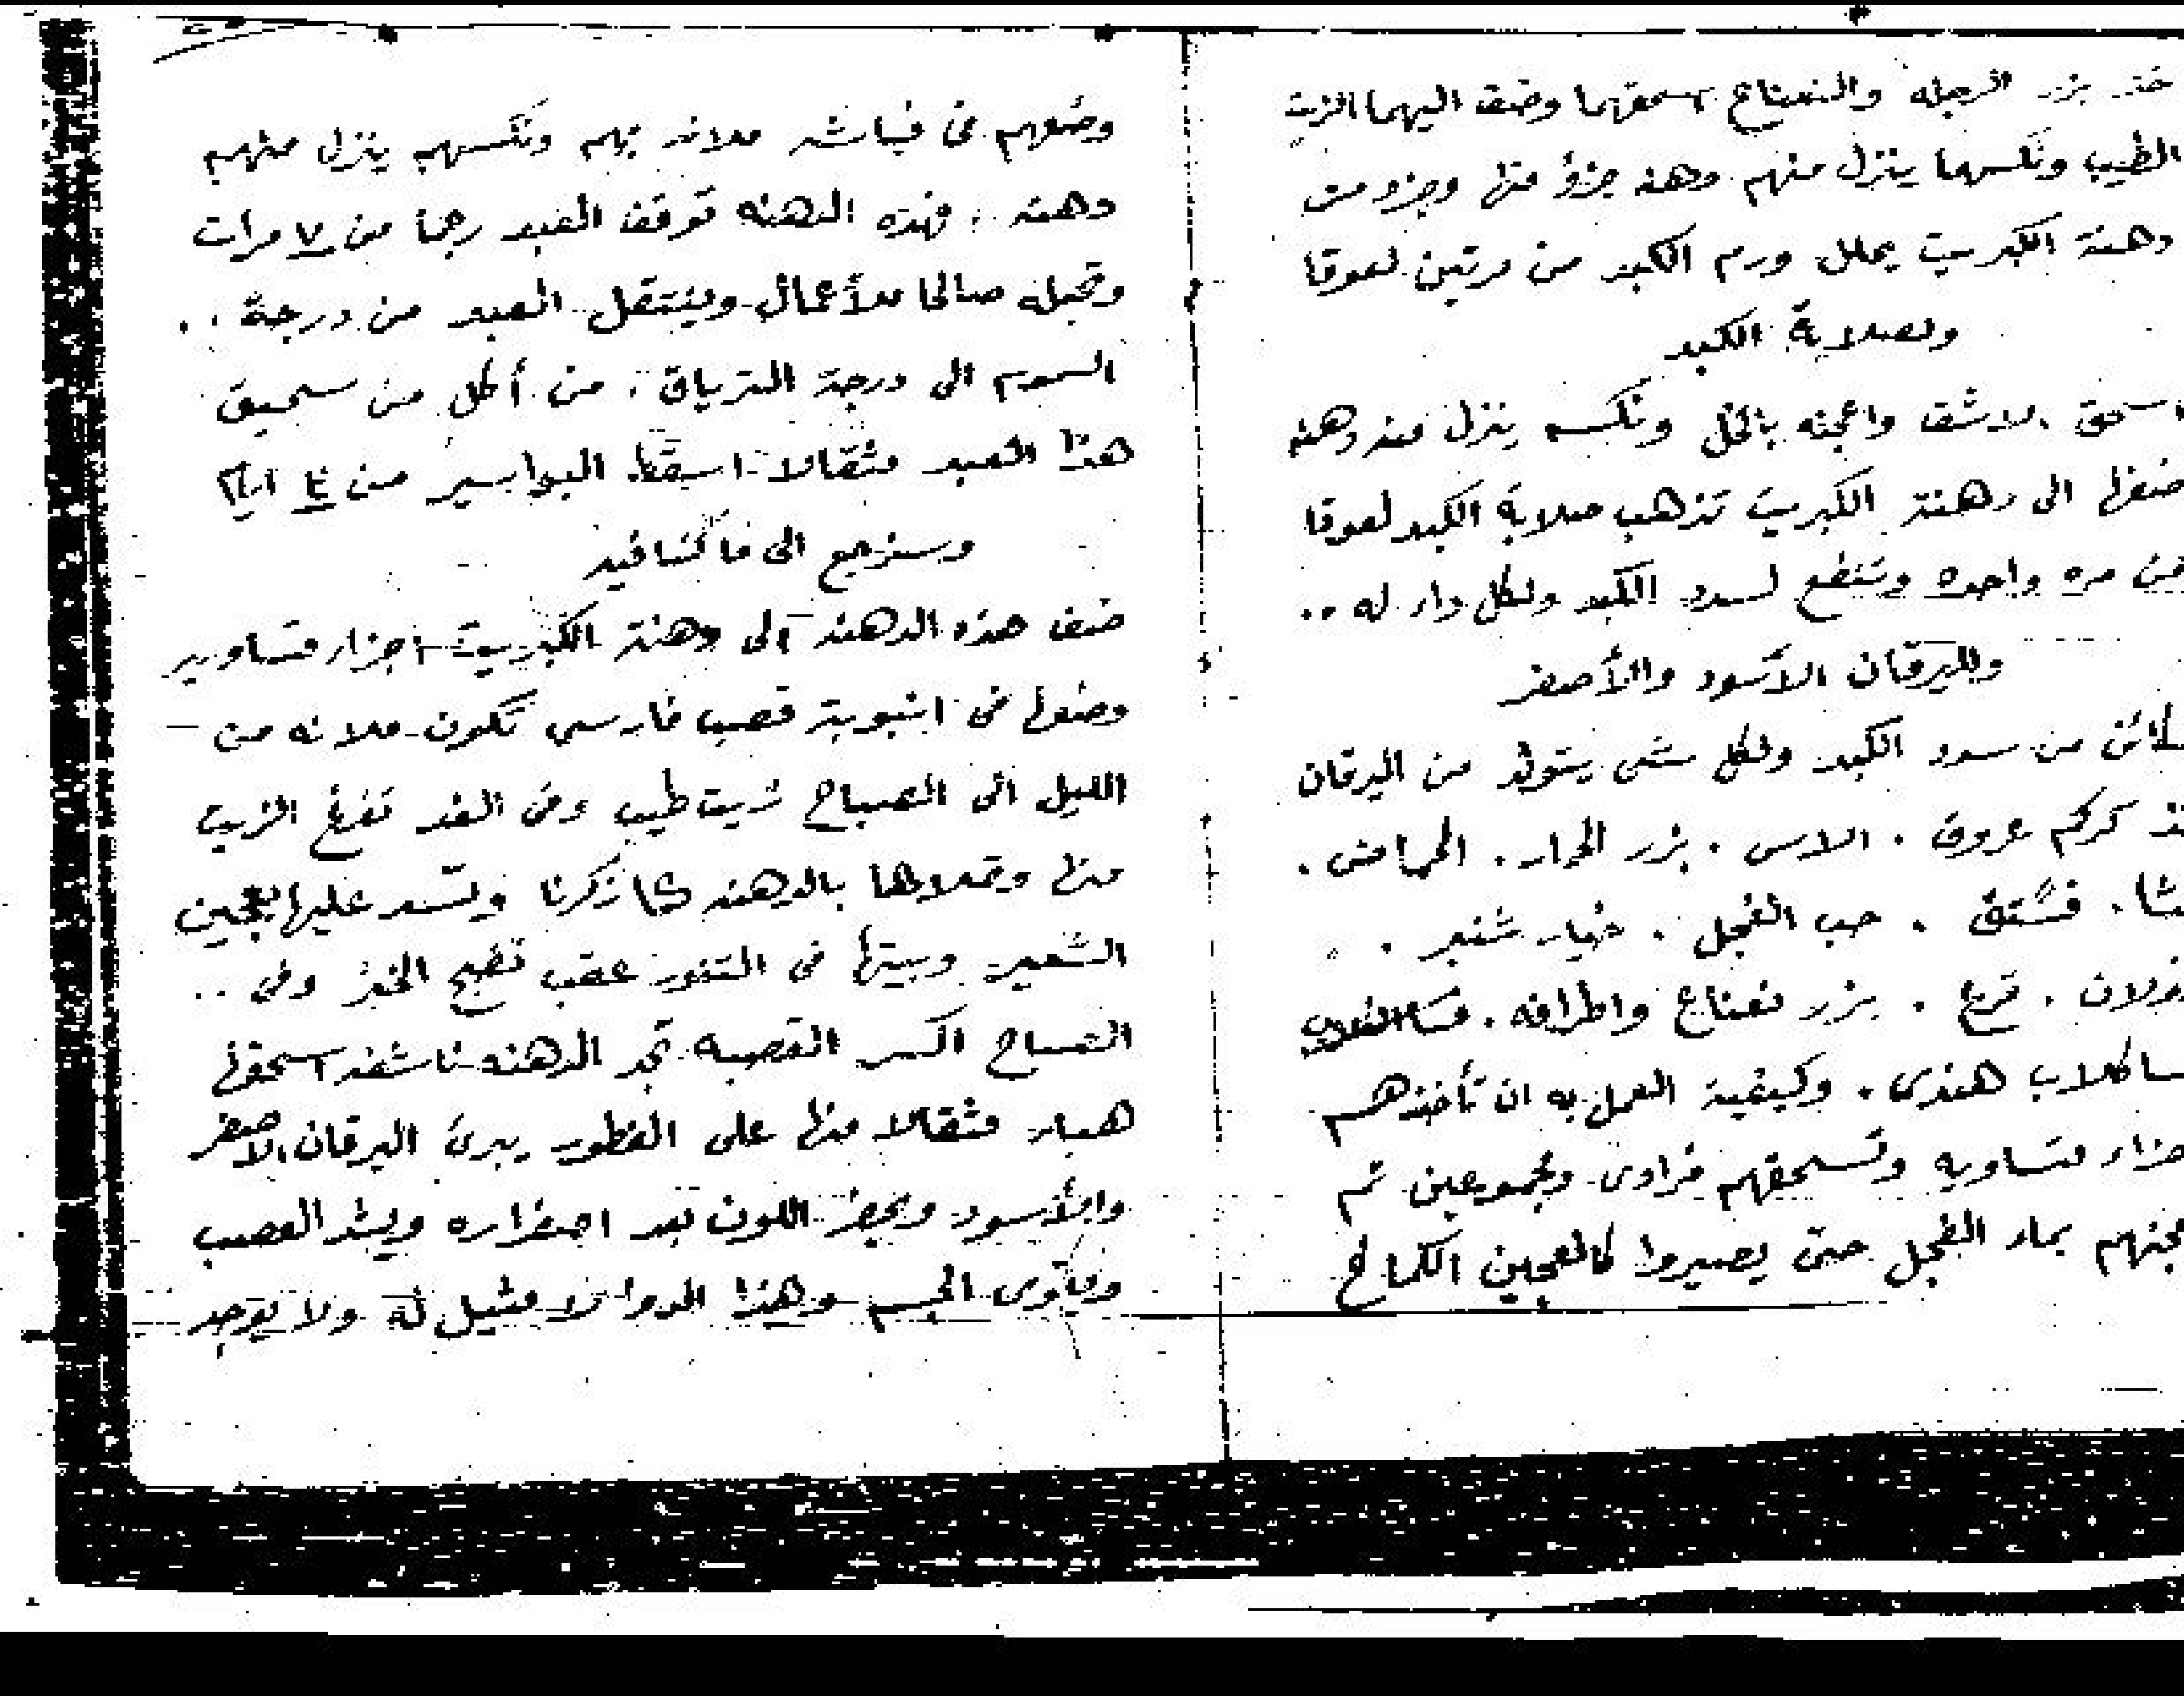 خذ بزر الرجله والنعناع اسحقهما وضف اليهما الزيت
الطيب ونكسهما ينزل منهم دهنه جزؤ منها وجزو من
دهنة الكبريت يحلل ورم الكبد من مرتين لعوقا
ولصلابة الكبد
اسحق الاشق واعجنه بالخل ونكسه ينزل منه دهنه
ضفها الى دهنة الكبريت تذهب صلابة الكبد لعوقا
من مره واحده وتنفع لسدد الكبد ولكل داء له ..
ولليرقان الأسود والأصفر
من سدد الكبد ولكل شئ يتولد من اليرقان
كركم عروق . الاس . بزر . الحماض .
فستق . حب الفجل . خيار شنبر .
قرع . بزر نعناع واطرافه .
هندى . وكيفية العمل به ان تأخذهم
اجزاء متساويه وتسحقهم فرادى ومجموعين ثم
تعجنهم بماء الفجل حتى يصيروا كالعجين الكماخ
وضعهم فى قباشه ملانه بهم ونكسهم ينزل منهم
دهنه . فهذه الدهنه توقف العبد رجما من ٧ مرات
وتجعله صالحا للأعمال وينتقل العبد من درجة ..
السموم الى درجة الترياق . من أكل من سحيق
هذا العبد مثقالا اسقط البواسير من ٤ ايام
وسنرجع الى ما كنا فيه
ضف هذه الدهنه الى دهنة الكبريت اجزاء متساويه
وضعها فى انبوبة قصب فارسى تكون ملانه من
الليل الى الصباح زيت طيب وفى الغد تفرغ الزيت
منها وتملاها بالدهنه كما ذكرنا وتسد عليها بعجين
الشعير وبيتها فى التنور عقب نضج الخبز وفى ..
الصباح اكسر القصبه تجد الدهنه ناشفه اسحقها
هباء مثقالا منها على الفطور يبرئ اليرقان الاصفر
والأسود ويحمر اللون بعد اصفراره ويشد العصب
ويقوى الجسم وهذا الدوا لا مثيل له ولا يوجد